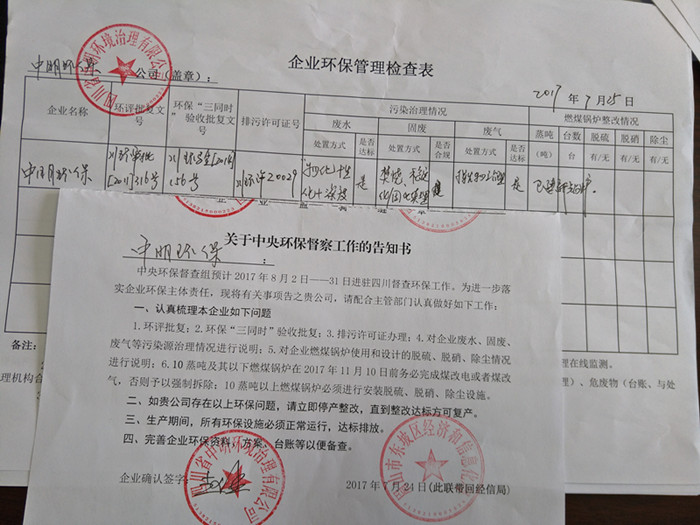 企业环保管理检查表
中明环保 公司（盖章）：
2017 年 7 月 25 日
企业名称 环评批复文号 环保“三同时”验收批复文号 排污许可证号 污染治理情况 燃煤锅炉整改情况
废水 固废 废气 蒸吨 台数 脱硫 脱硝 除尘
处置方式 是否达标 处置方式 是否合规 处置方式 是否达标 （吨） 台 有/无 有/无 有/无
中明环保 川环审批[2011]316号 156号 川环许Z0029 是 焚烧、 是 是
关于中央环保督察工作的告知书
中明环保 ：
中央环保督查组预计 2017 年 8 月 2 日——31 日进驻四川督查环保工作。为进一步落
实企业环保主体责任，现将有关事项告之贵公司，请配合主管部门认真做好如下工作：
一、认真梳理本企业如下问题
1.环评批复；2.环保“三同时”验收批复；3.排污许可证办理；4.对企业废水、固废、
废气等污染源治理情况进行说明；5.对企业燃煤锅炉使用和设计的脱硫、脱硝、除尘情况
进行说明；6.10 蒸吨及其以下燃煤锅炉在 2017 年 11 月 10 日前务必完成煤改电或者煤改
气，否则予以强制拆除；10 蒸吨以上燃煤锅炉必须进行安装脱硫、脱硝、除尘设施。
二、如贵公司存在以上环保问题，请立即停产整改，直到整改达标方可复产。
三、生产期间，所有环保设施必须正常运行，达标排放。
四、完善企业环保资料，方案、台账等以便备查。
企业确认签字：
2017 年 7 月 24 日(此联带回经信局)
备注：
在线监测。
理机构合
）、危废物（台账、与处
四川省中明环境治理有限公司
四川省中明环境治理有限公司
眉山市东坡区经济和信息化局